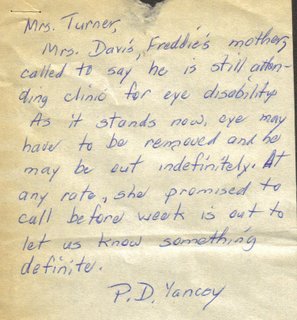 Mrs. Turner,
Mrs. Davis, Freddie's mother,
called to say he is still atten-
ding clinic for eye disability.
As it stands now, eye may
have to be removed and he
may be out indefinitely. At
any rate, she promised to
call before week is out to
let us know something
definite.
P.D. Yancoy